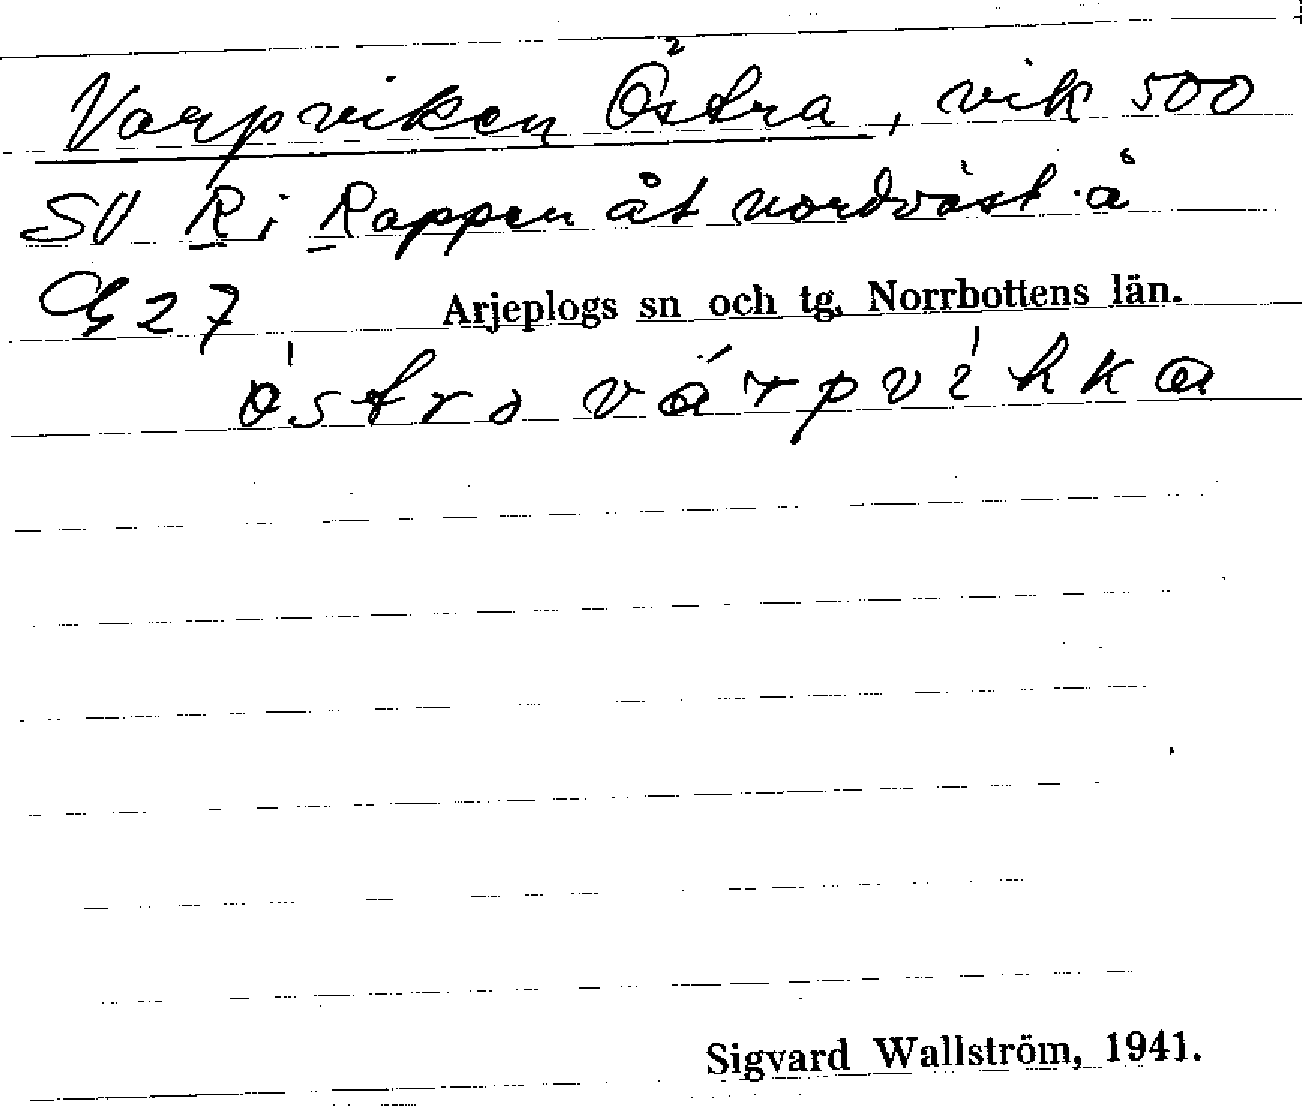 Varpviken Östra, vik 500
SV R i Rappen åt nordväst å
G 27 Arjeplogs sn och tg, Norrbottens län.
östra várpvikka
Sigvard Wallström, 1941.